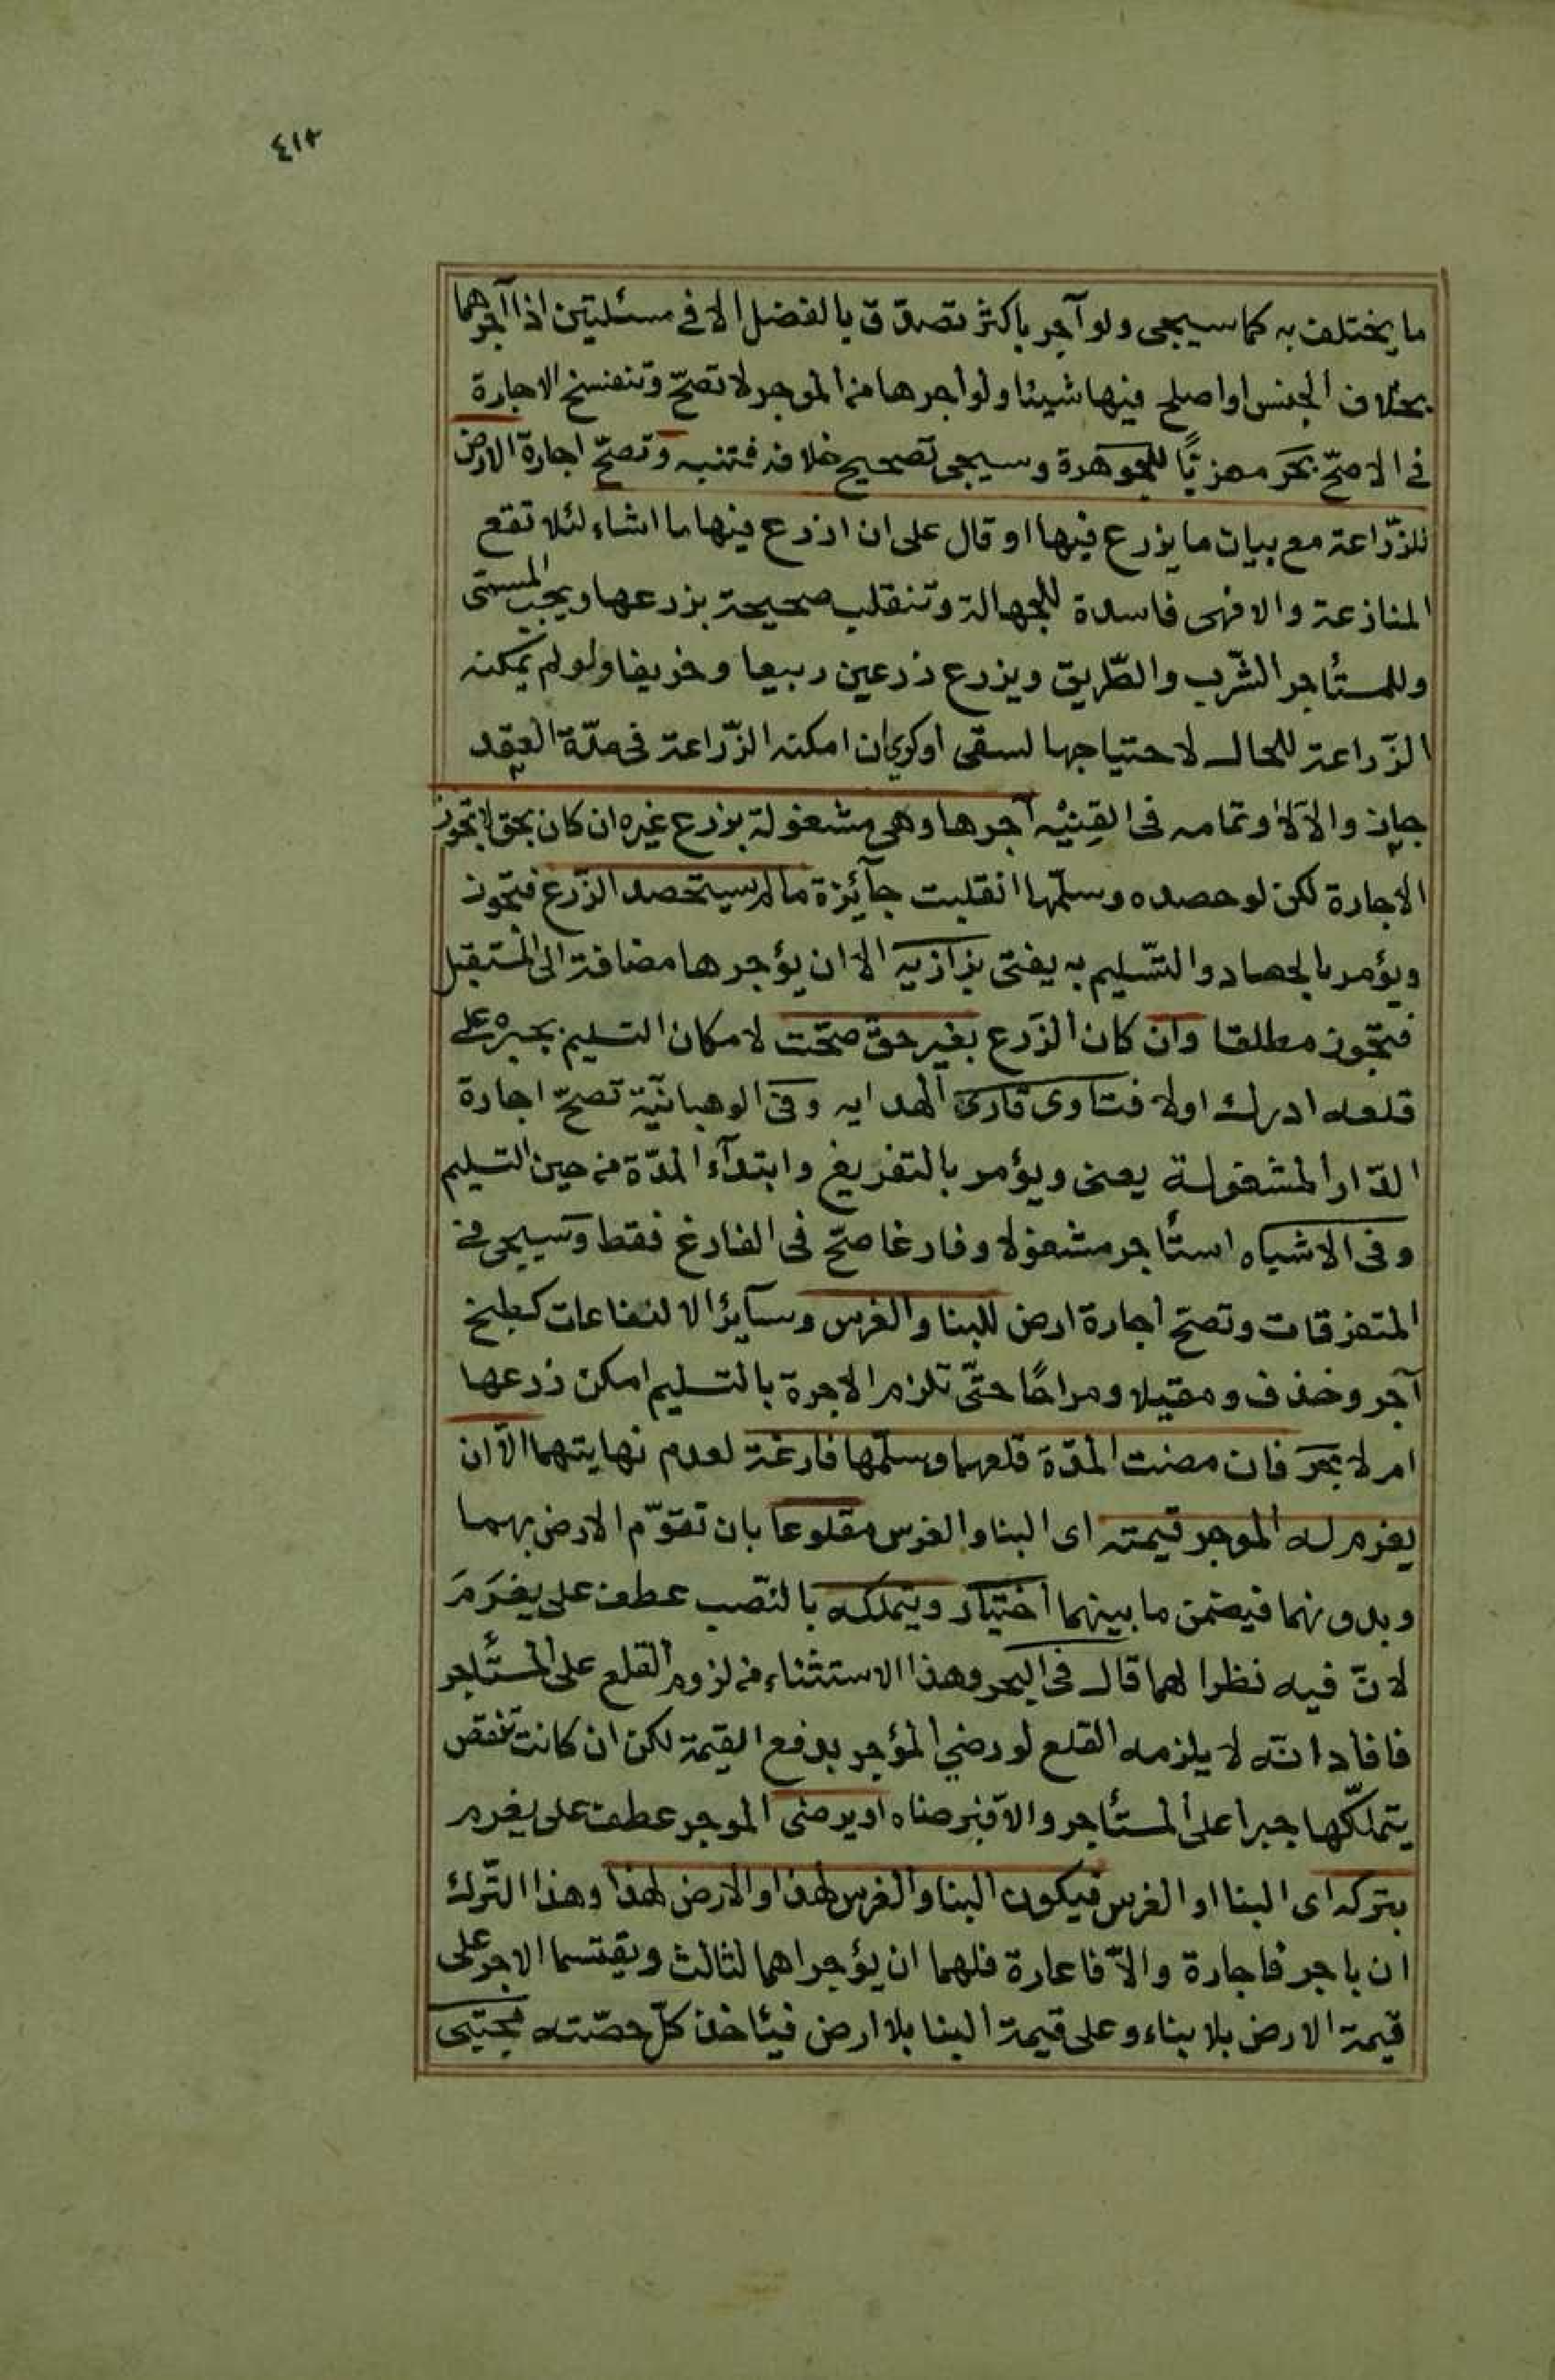 ٤١٢
ما يختلف به كما سيجى ولو آجر باكثر تصدق بالفضل الا فى مسئلتين اذا آجرها
بخلاف الجنس او اصلح فيها شيئا ولو اجرها من الموجر لا تصحّ وتنفسخ الاجارة
فى الاصحّ بحر معزيًا للجوهرة وسيجى تصحيح خلافه فتنبه وتصحّ اجارة الارض
للزّراعة مع بيان ما يزرع فيها او قال على ان ازرع فيها ما اشاء لئلا تقع
المنازعة والا فهى فاسدة للجهالة وتنقلب صحيحة بزرعها ويجب المسمّى
وللمستأجر الشّرب والطّريق ويزرع زرعين ربيعا وخريفا ولو لم يمكنه
الزّراعة للحال لاحتياجها لسقى او كري ان امكنه الزّراعة فى مدّة العقد
جاز والاّ لا وتمامه فى القنيه آجرها وهى مشغولة بزرع غيره ان كان بحق لا تجوز
الاجارة لكن لو حصده وسلّمها انقلبت جآئزة ما لم يستحصد الزّرع فتجوز
ويؤمر بالحصاد والتّسليم به يفتى بزازيه الا ان يؤجرها مضافة الى المستقبل
فتجوز مطلقا وان كان الزّرع بغير حقّ صحّت لامكان التسليم بجبره على
قلعه ادرك اولا فتاوى قارى الهدايه وفى الوهبانيّة تصحّ اجارة
الدّار المشغولة يعنى ويؤمر بالتفريغ وابتدآء المدّة من حين التسليم
وفى الاشباه استأجر مشغولا وفارغا صحّ فى الفارغ فقط وسيجى فى
المتفرقات وتصح اجارة ارض للبنا والغرس وسآيرالانتفاعات كطبخ
آجر وخذف ومقيلا ومراحًا حتّى تلزم الاجرة بالتسليم امكن زرعها
ام لا بحر فان مضت المدّة قلعهما وسلّمها فارغة لعدم نهايتهما الاّ ان
يغرم له الموجر قيمته اى البنا والغرس مقلوعا بان تقوّم الارض بهما
وبدونهما فيضمن ما بينهما اختيار ويتملكه بالنّصب عطف على يغرَمَ
لانّ فيه نظرا لهما قال فى البحر وهذا الاستثناء من لزوم القلع على المستأجر
فافاد انّه لا يلزمه القلع لو رضي المؤجر بدفع القيمة لكن ان كانت تنقص
يتملّكها جبرا على المستأجر والاّ فبرضاه او يرضى الموجر عطف على يغرم
بتركه اى البنا او الغرس فيكون البنا والغرس لهذا والارض لهذا وهذا التّرك
ان باجر فاجارة والاّ فاعارة فلهما ان يؤجراهما لثالث ويقتسما الاجر على
قيمة الارض بلا بناء وعلى قيمة البنا بلا ارض فيأخذ كلّ حصّته مجتبى